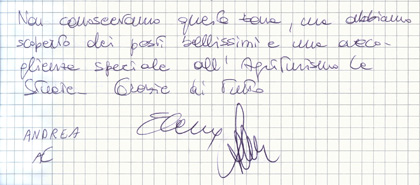 Non conoscevamo questa zona, ma abbiamo
scoperto dei posti bellissimi e una acco-
glienza speciale all' Agriturismo Le
Grazie di tutto
ANDREA